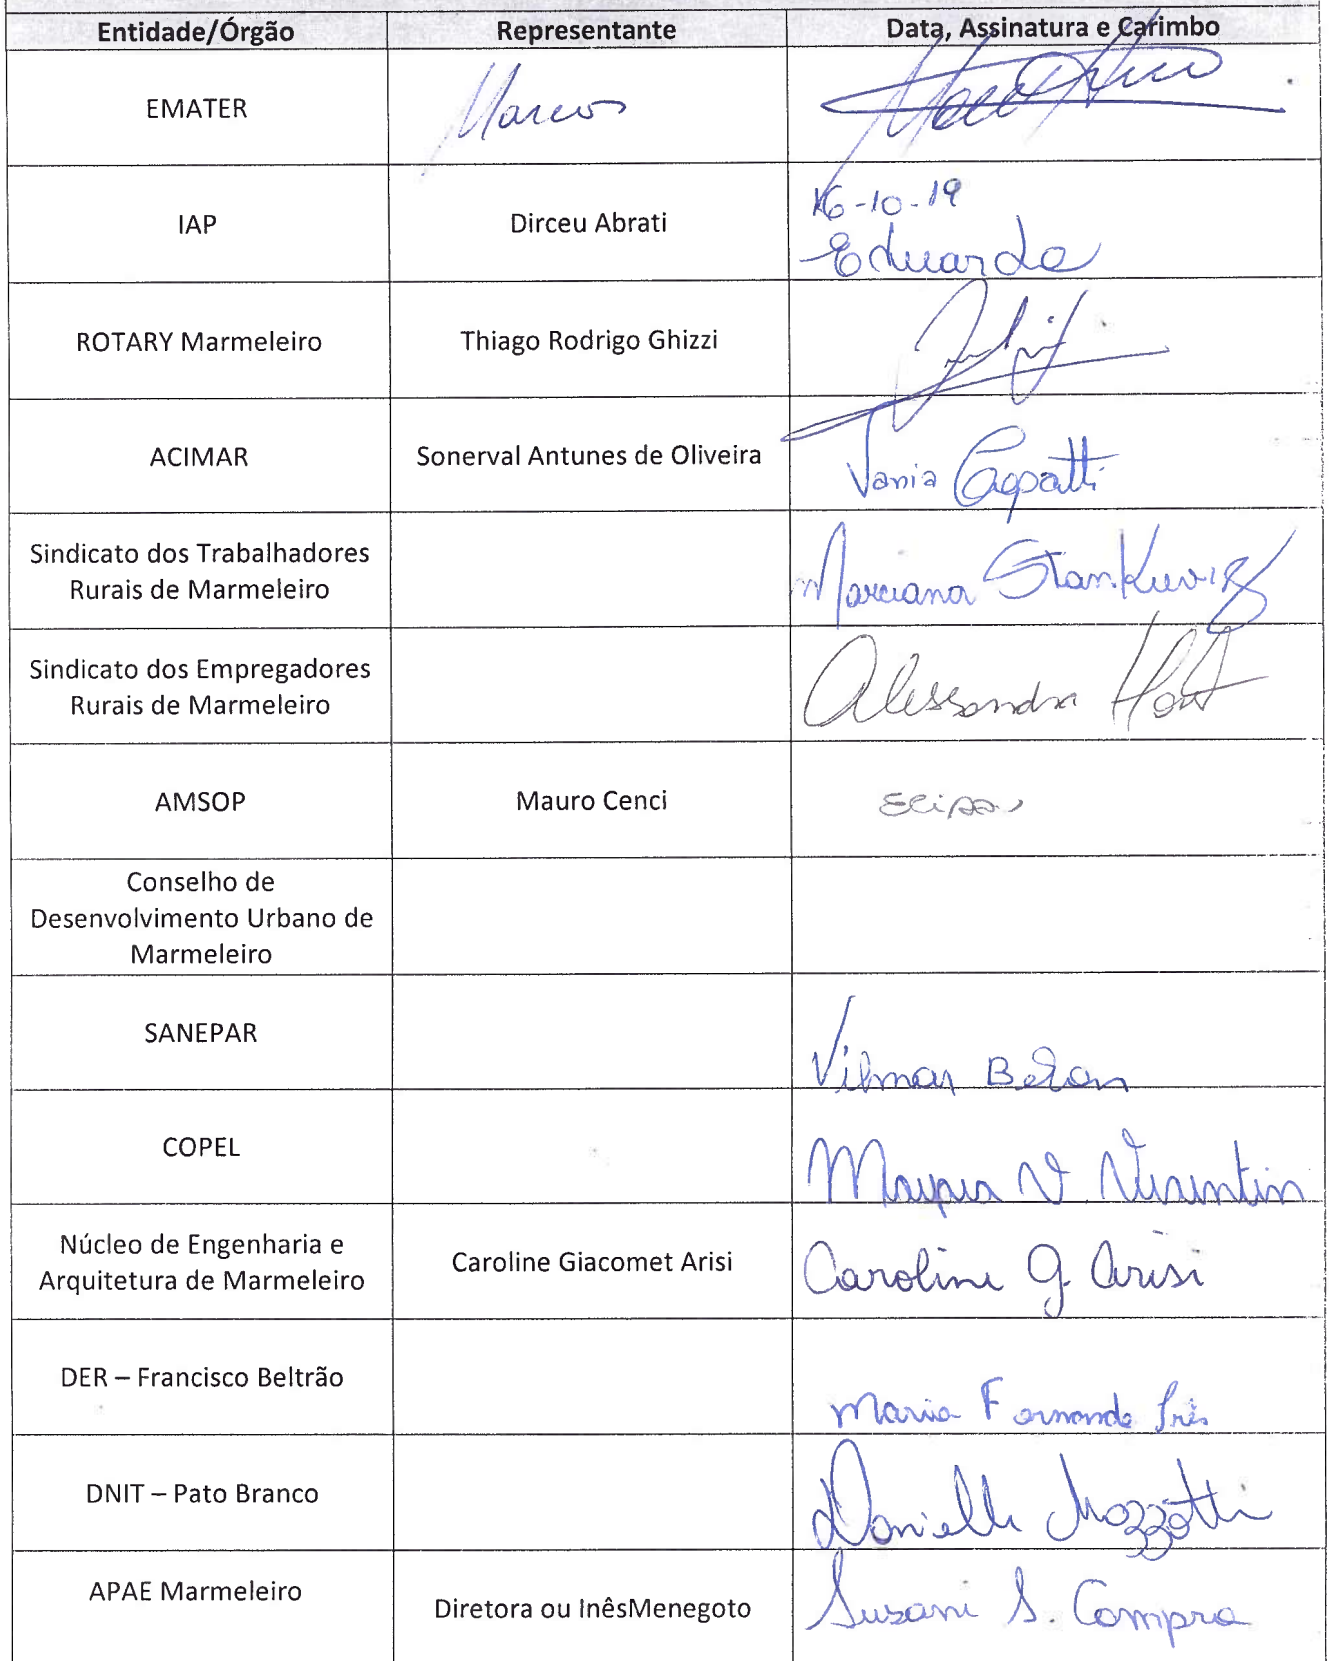 Entidade/Órgão Representante Data, Assinatura e Carimbo
EMATER Marcos
IAP Dirceu Abrati 16-10-19
Eduarda
ROTARY Marmeleiro Thiago Rodrigo Ghizzi
ACIMAR Sonerval Antunes de Oliveira Vania
Sindicato dos Trabalhadores
Rurais de Marmeleiro Marciana
Sindicato dos Empregadores
Rurais de Marmeleiro Alessandra
AMSOP Mauro Cenci
Conselho de
Desenvolvimento Urbano de
Marmeleiro
SANEPAR Vilmar
COPEL V.
Núcleo de Engenharia e
Arquitetura de Marmeleiro Caroline Giacomet Arisi Caroline G. Arisi
DER – Francisco Beltrão Maria Fernanda
DNIT – Pato Branco Danielli
APAE Marmeleiro Diretora ou InêsMenegoto Susani S.